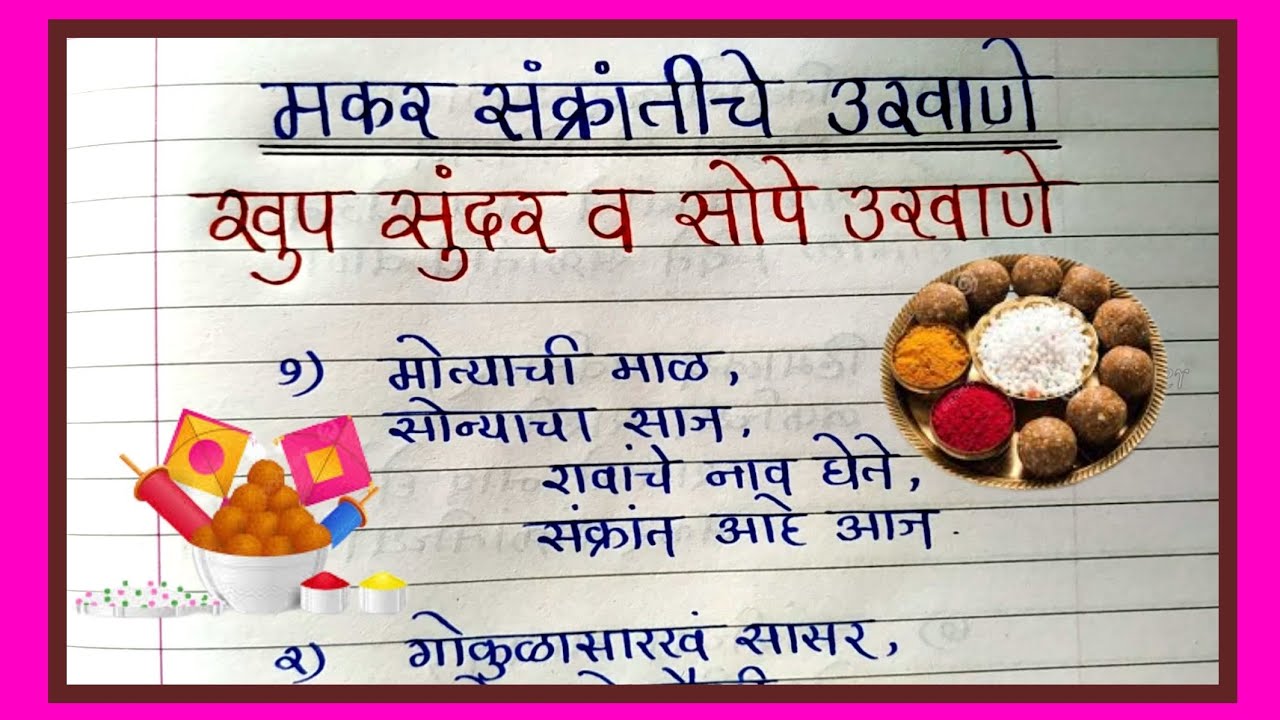 मकर संक्रांतीचे उखाणे
खुप सुंदर व सोपे उखाणे
१) मोत्याची माळ,
सोन्याचा साज,
रावांचे नाव घेते,
संक्रांत आहे आज.
२) गोकुळासारखं सासर,